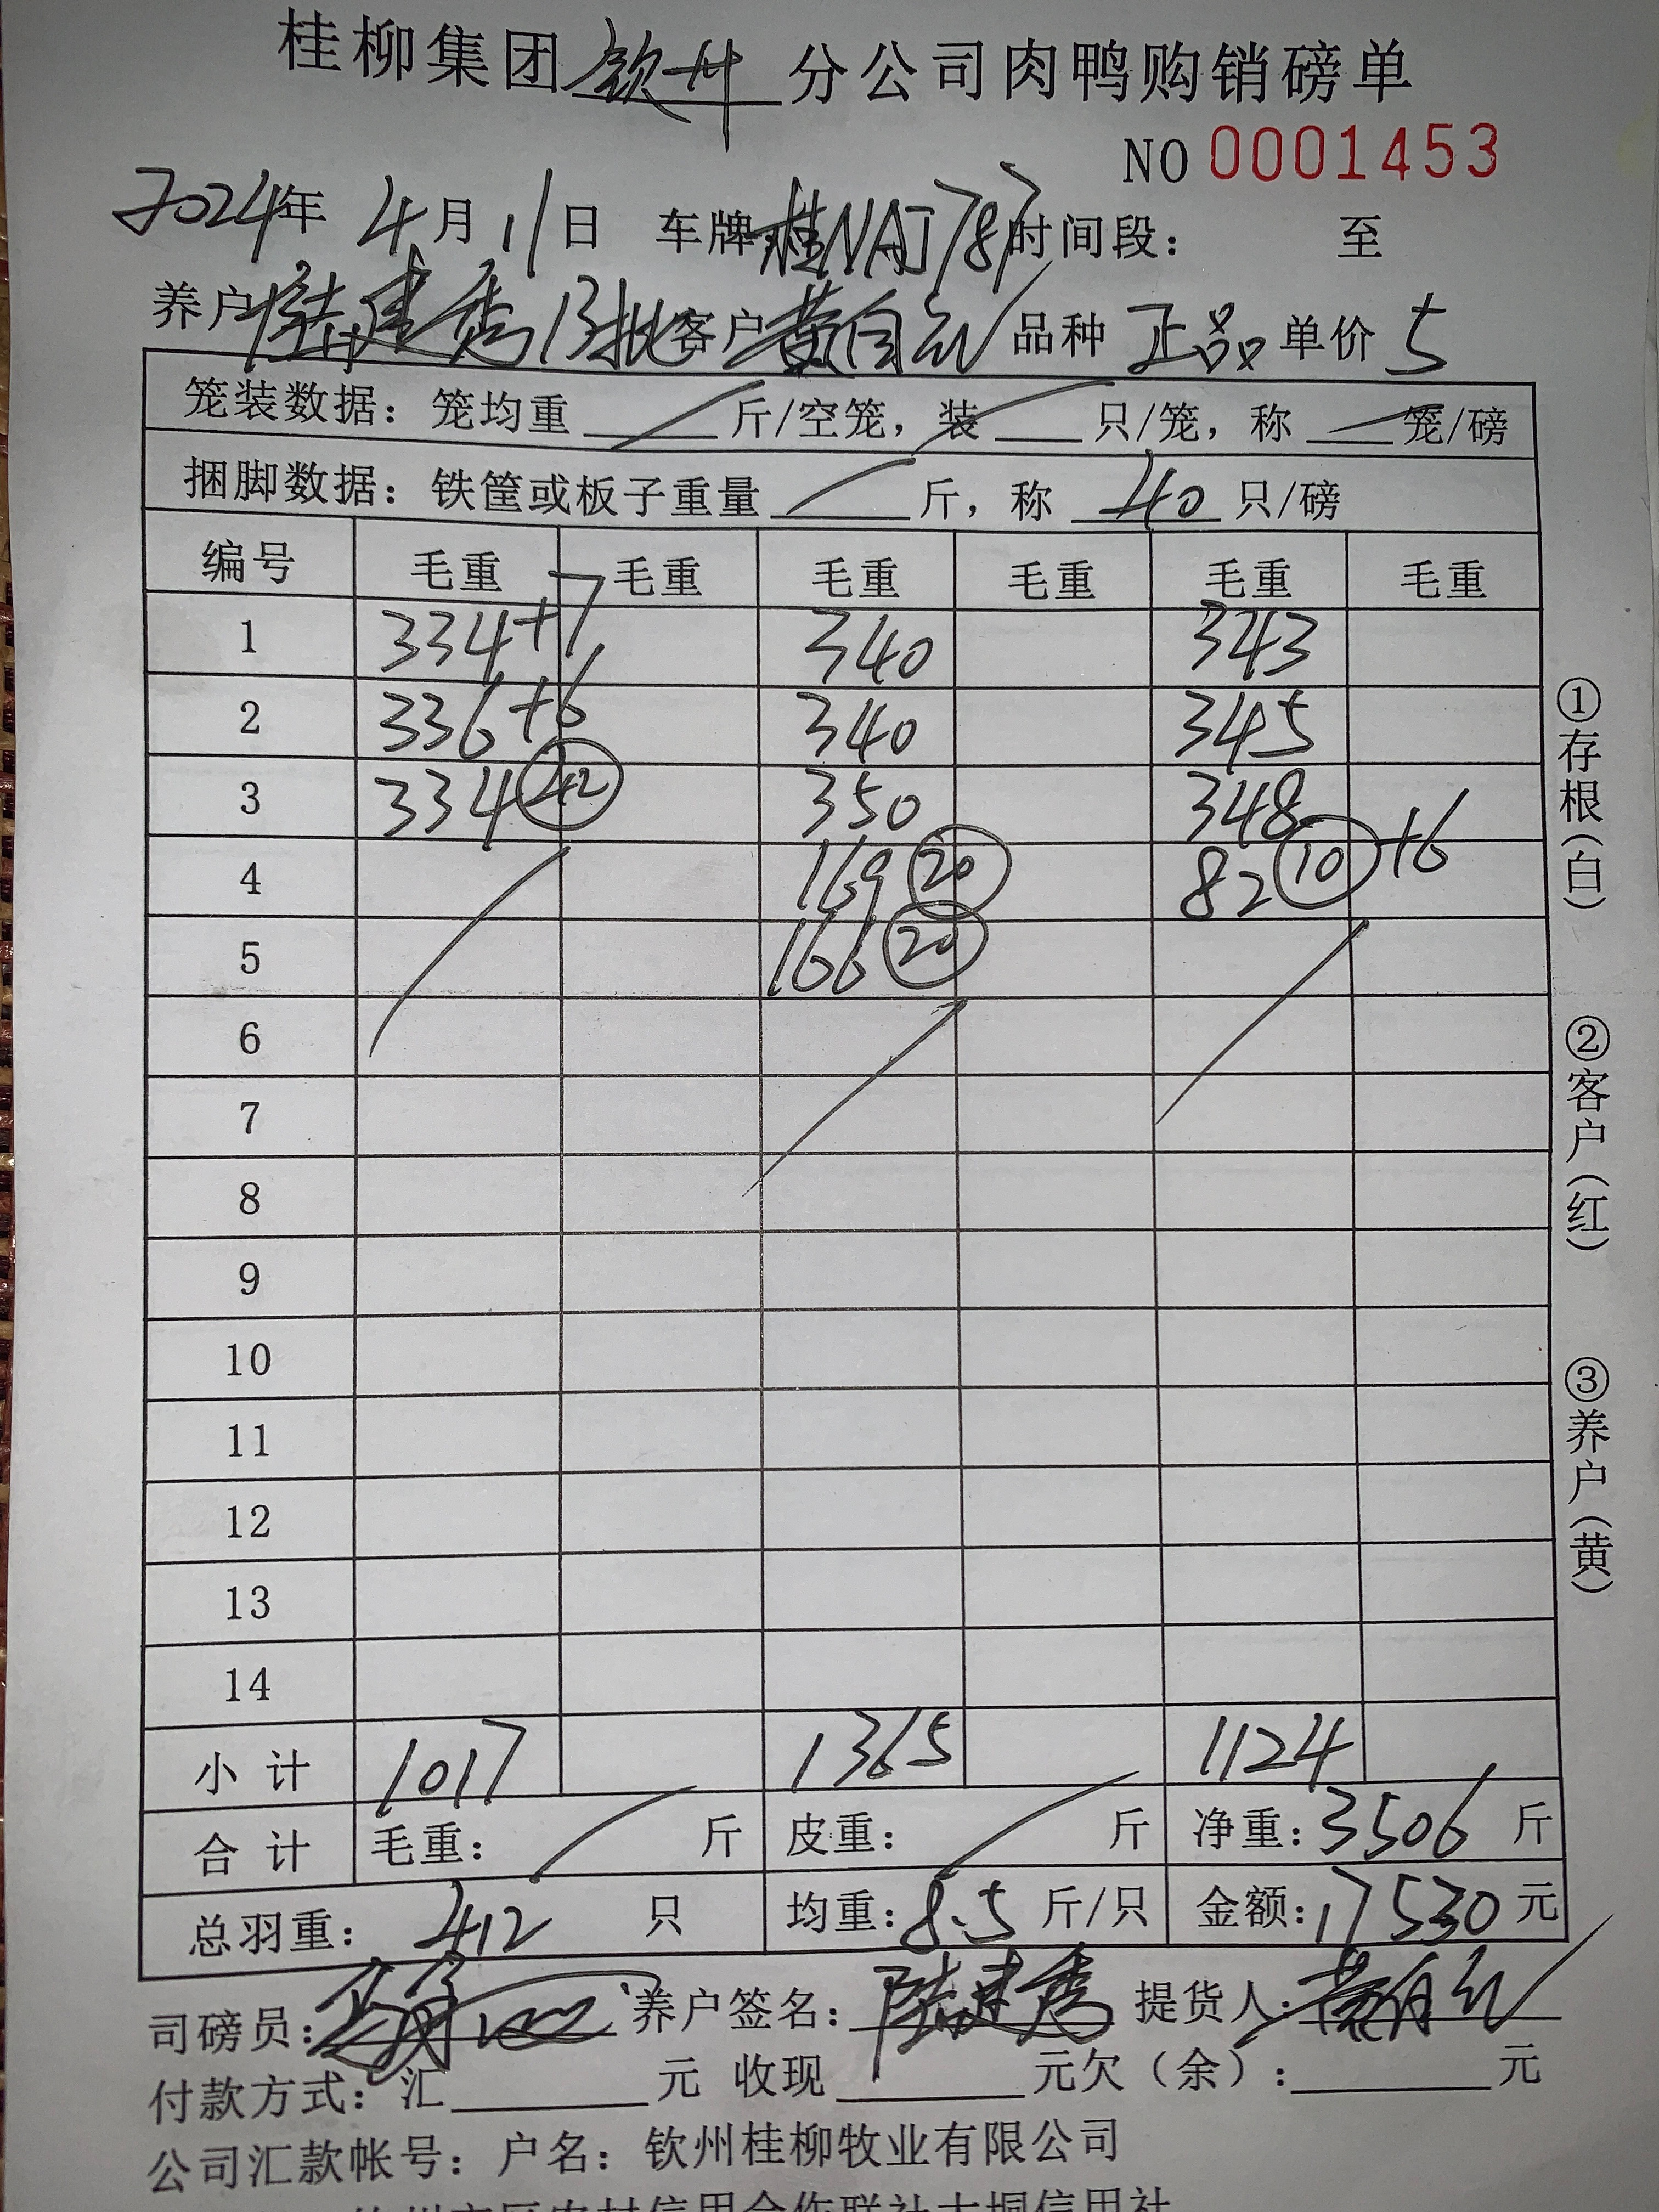 桂柳集团钦州分公司肉鸭购销磅单
NO 0001453
2024年 4月11日 车牌桂NAJ787时间段: 至
养户陆建秀13批客户黄自 品种 正品 单价 5
笼装数据:笼均重 斤/空笼,装 只/笼,称 笼/磅
捆脚数据:铁筐或板子重量 斤,称 40 只/磅
编号 毛重 毛重 毛重 毛重 毛重 毛重
1 334+7 340 343
2 336+6 340 345
3 334 42 350 348
4 169 20 82 10 +6
5 166 20
6
7
8
9
10
11
12
13
14
小计 1017 1365 1124
合计 毛重: 斤 皮重: 斤 净重:3506 斤
总羽重: 412 只 均重:8.5 斤/只 金额:17530元
司磅员: 养户签名:陆建秀 提货人:黄自
付款方式:汇 元 收现 元欠(余): 元
公司汇款帐号:户名:钦州桂柳牧业有限公司
①存根(白) ②客户(红) ③养户(黄)